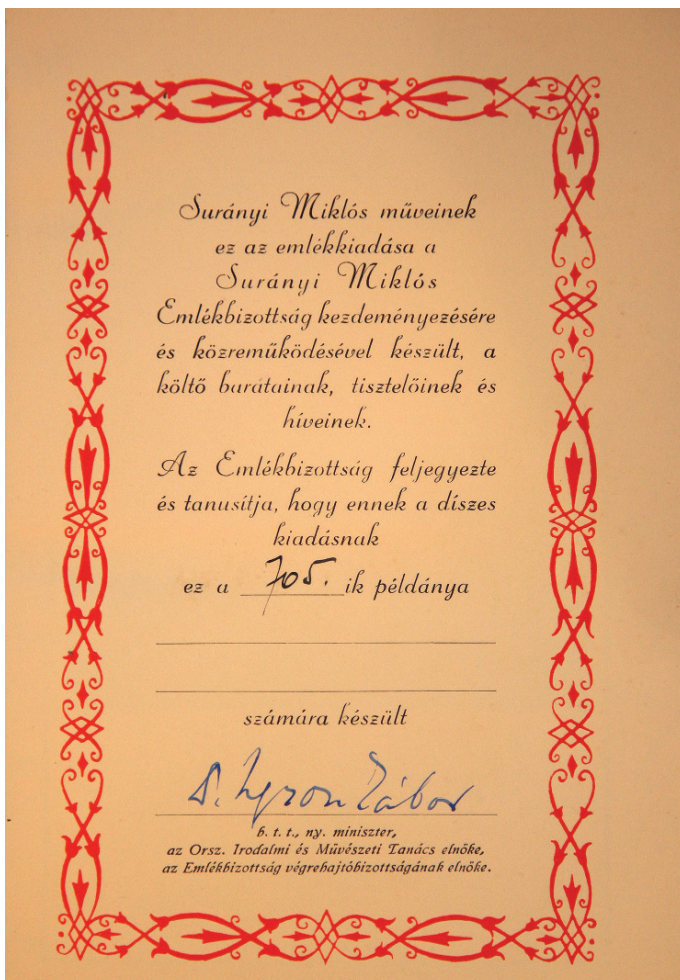 Surányi Miklós műveinek
ez az emlékkiadása a
Surányi Miklós
Emlékbizottság kezdeményezésére
és közreműködésével készült, a
költő barátainak, tisztelőinek és
híveinek.
Az Emlékbizottság feljegyezte
és tanusítja, hogy ennek a díszes
kiadásnak
ez a 705. ik példánya
számára készült
b. t. t., ny. miniszter,
az Orsz. Irodalmi és Művészeti Tanács elnöke,
az Emlékbizottság végrehajtóbizottságának elnöke.